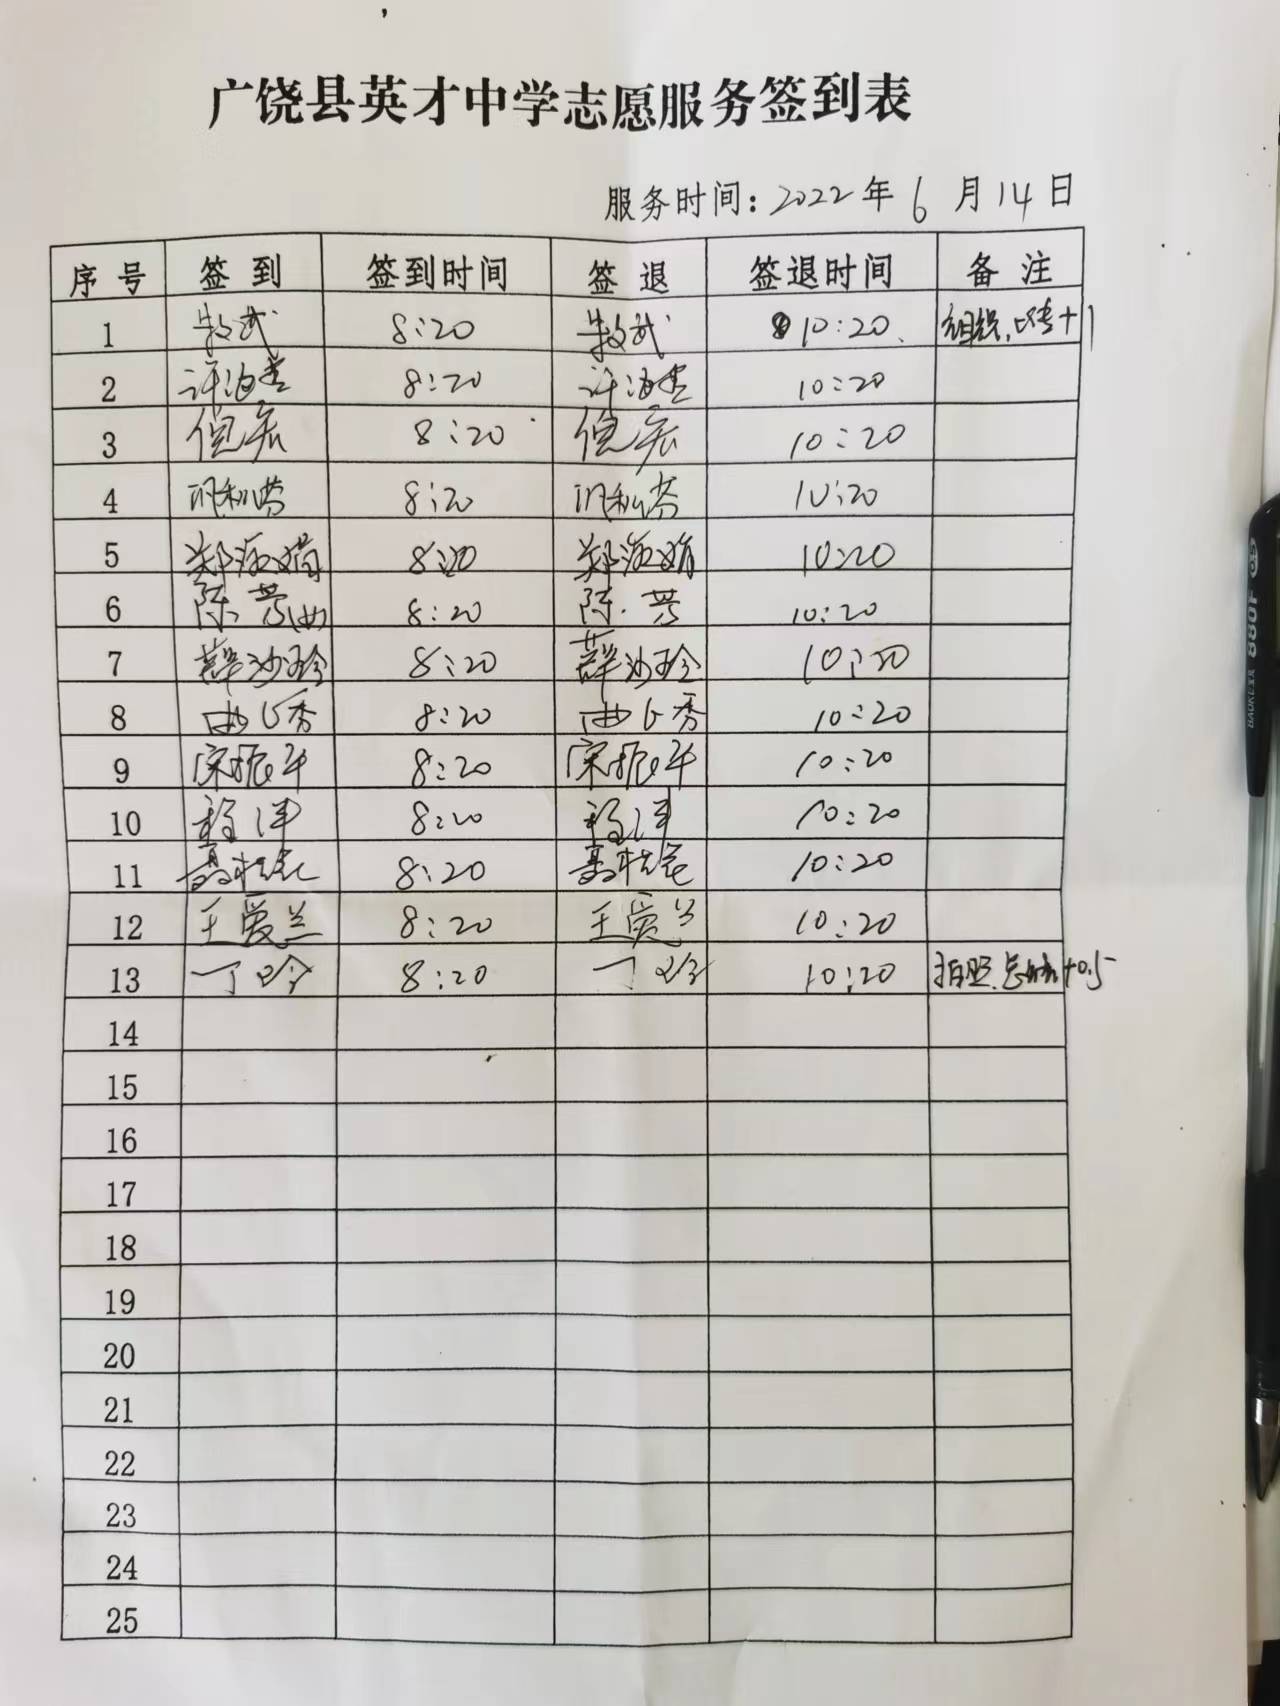 广饶县英才中学志愿服务签到表
服务时间：2022年6月14日
序号 签到 签到时间 签退 签退时间 备注
1 8:20 10:20 组织, +1
2 8:20 10:20
3 倪宏 8:20 倪宏 10:20
4 8:20 10:20
5 郑海娟 8:20 郑海娟 10:20
6 陈芳 8:20 陈芳 10:20
7 薛沙玲 8:20 薛沙玲 10:20
8 8:20 10:20
9 宋振平 8:20 宋振平 10:20
10 程洋 8:20 程洋 10:20
11 8:20 10:20
12 王爱兰 8:20 王爱兰 10:20
13 丁玲 8:20 丁玲 10:20 拍照. 总结 +0.5
14
15
16
17
18
19
20
21
22
23
24
25
BAOKE 880F